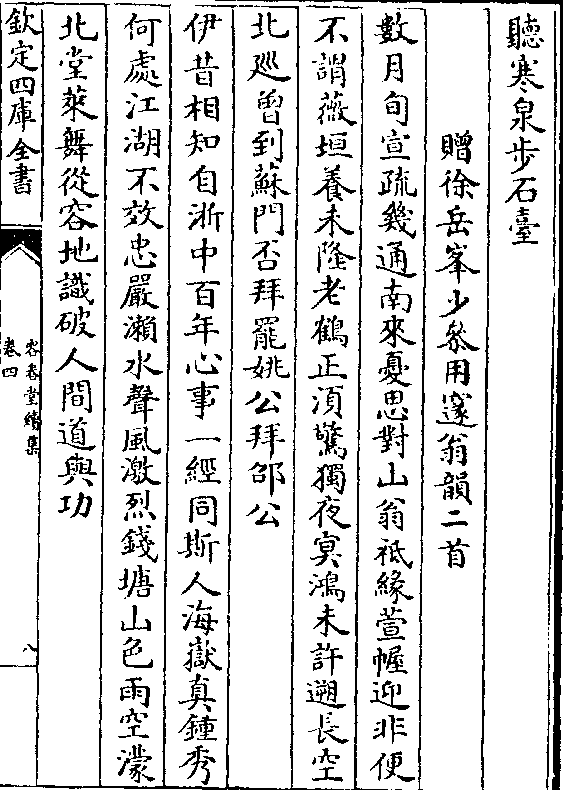 聽寒泉步石臺
贈徐岳峯少叅用邃翁韻二首
數月旬宣疏幾通南來憂思對山翁祗緣萱幄迎非便
不謂薇垣養未隆老鶴正須驚獨夜冥鴻未許遡長空
北廵曽到蘇門否拜罷姚公拜邵公
伊昔相知自浙中百年心事一經同斯人海嶽真鍾秀
何處江湖不效忠嚴瀨水聲風激烈錢塘山色雨空濛
北堂萊舞從容地識破人間道與功
欽定四庫全書
容春堂續集
卷四
八